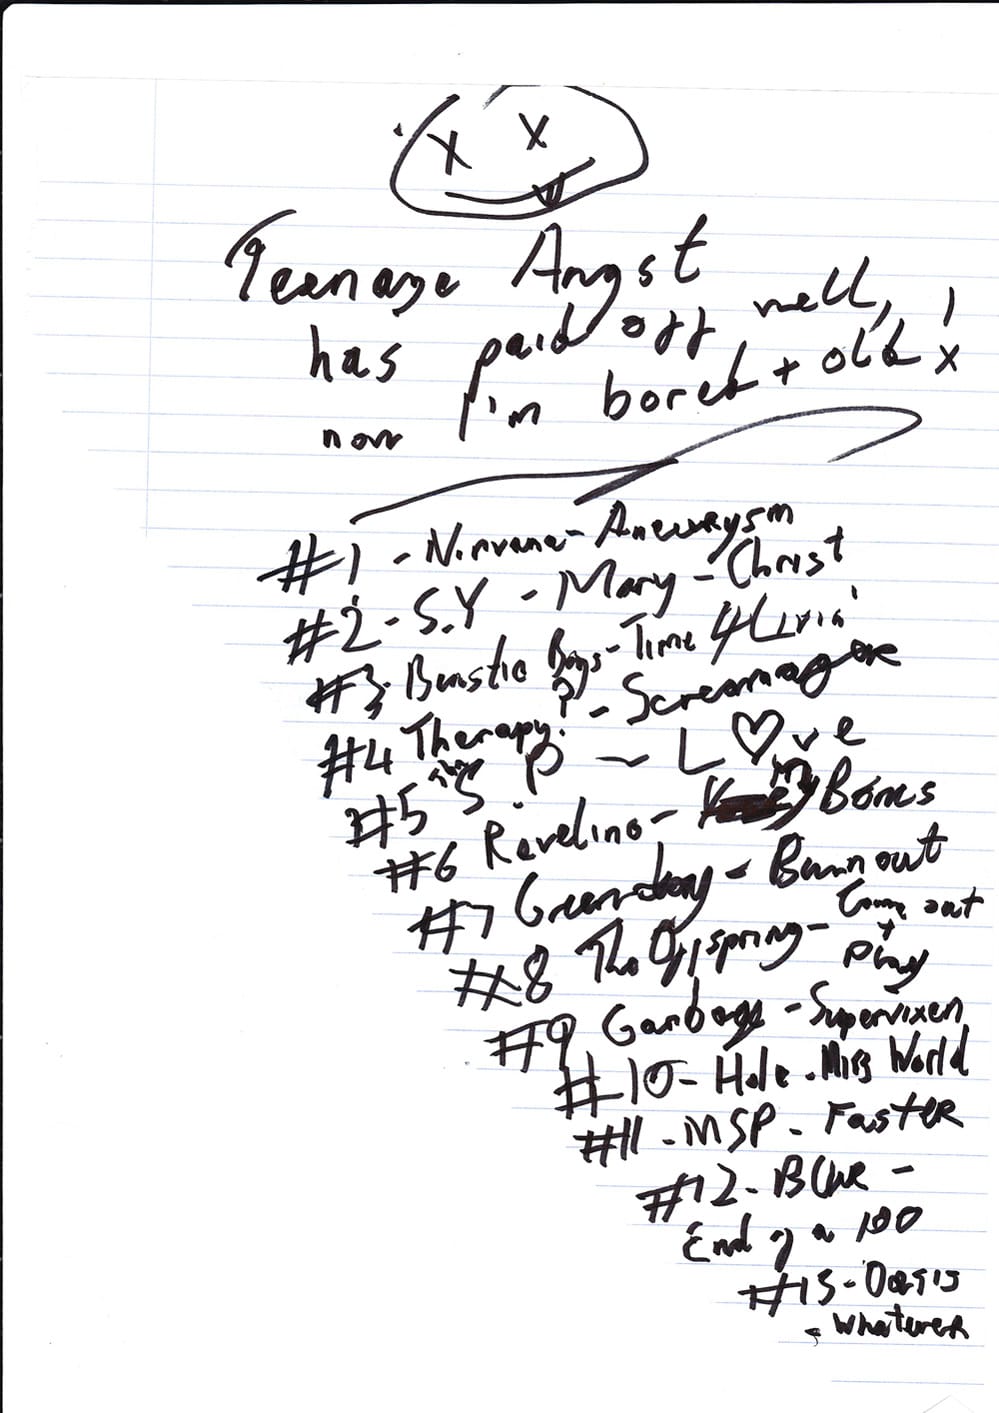 Teenage Angst
has paid off well,
now I'm bored + old!
x
#1 - Nirvana - Aneurysm
#2 - S.Y - Mary - Christ
#3 - Beastie Boys - Time 4 Livin'
#4 Therapy? - Screamager
#5 S P ~ L♡ve
#6 Revelino - my Bones
#7 Greenday - Burnout
#8 The Offspring - Come out
+ Play
#9 Garbage - Supervixen
#10 - Hole - Miss World
#11 - MSP - Faster
#12 - BLUR -
End of a 100
#13 - Oasis
- Whatever